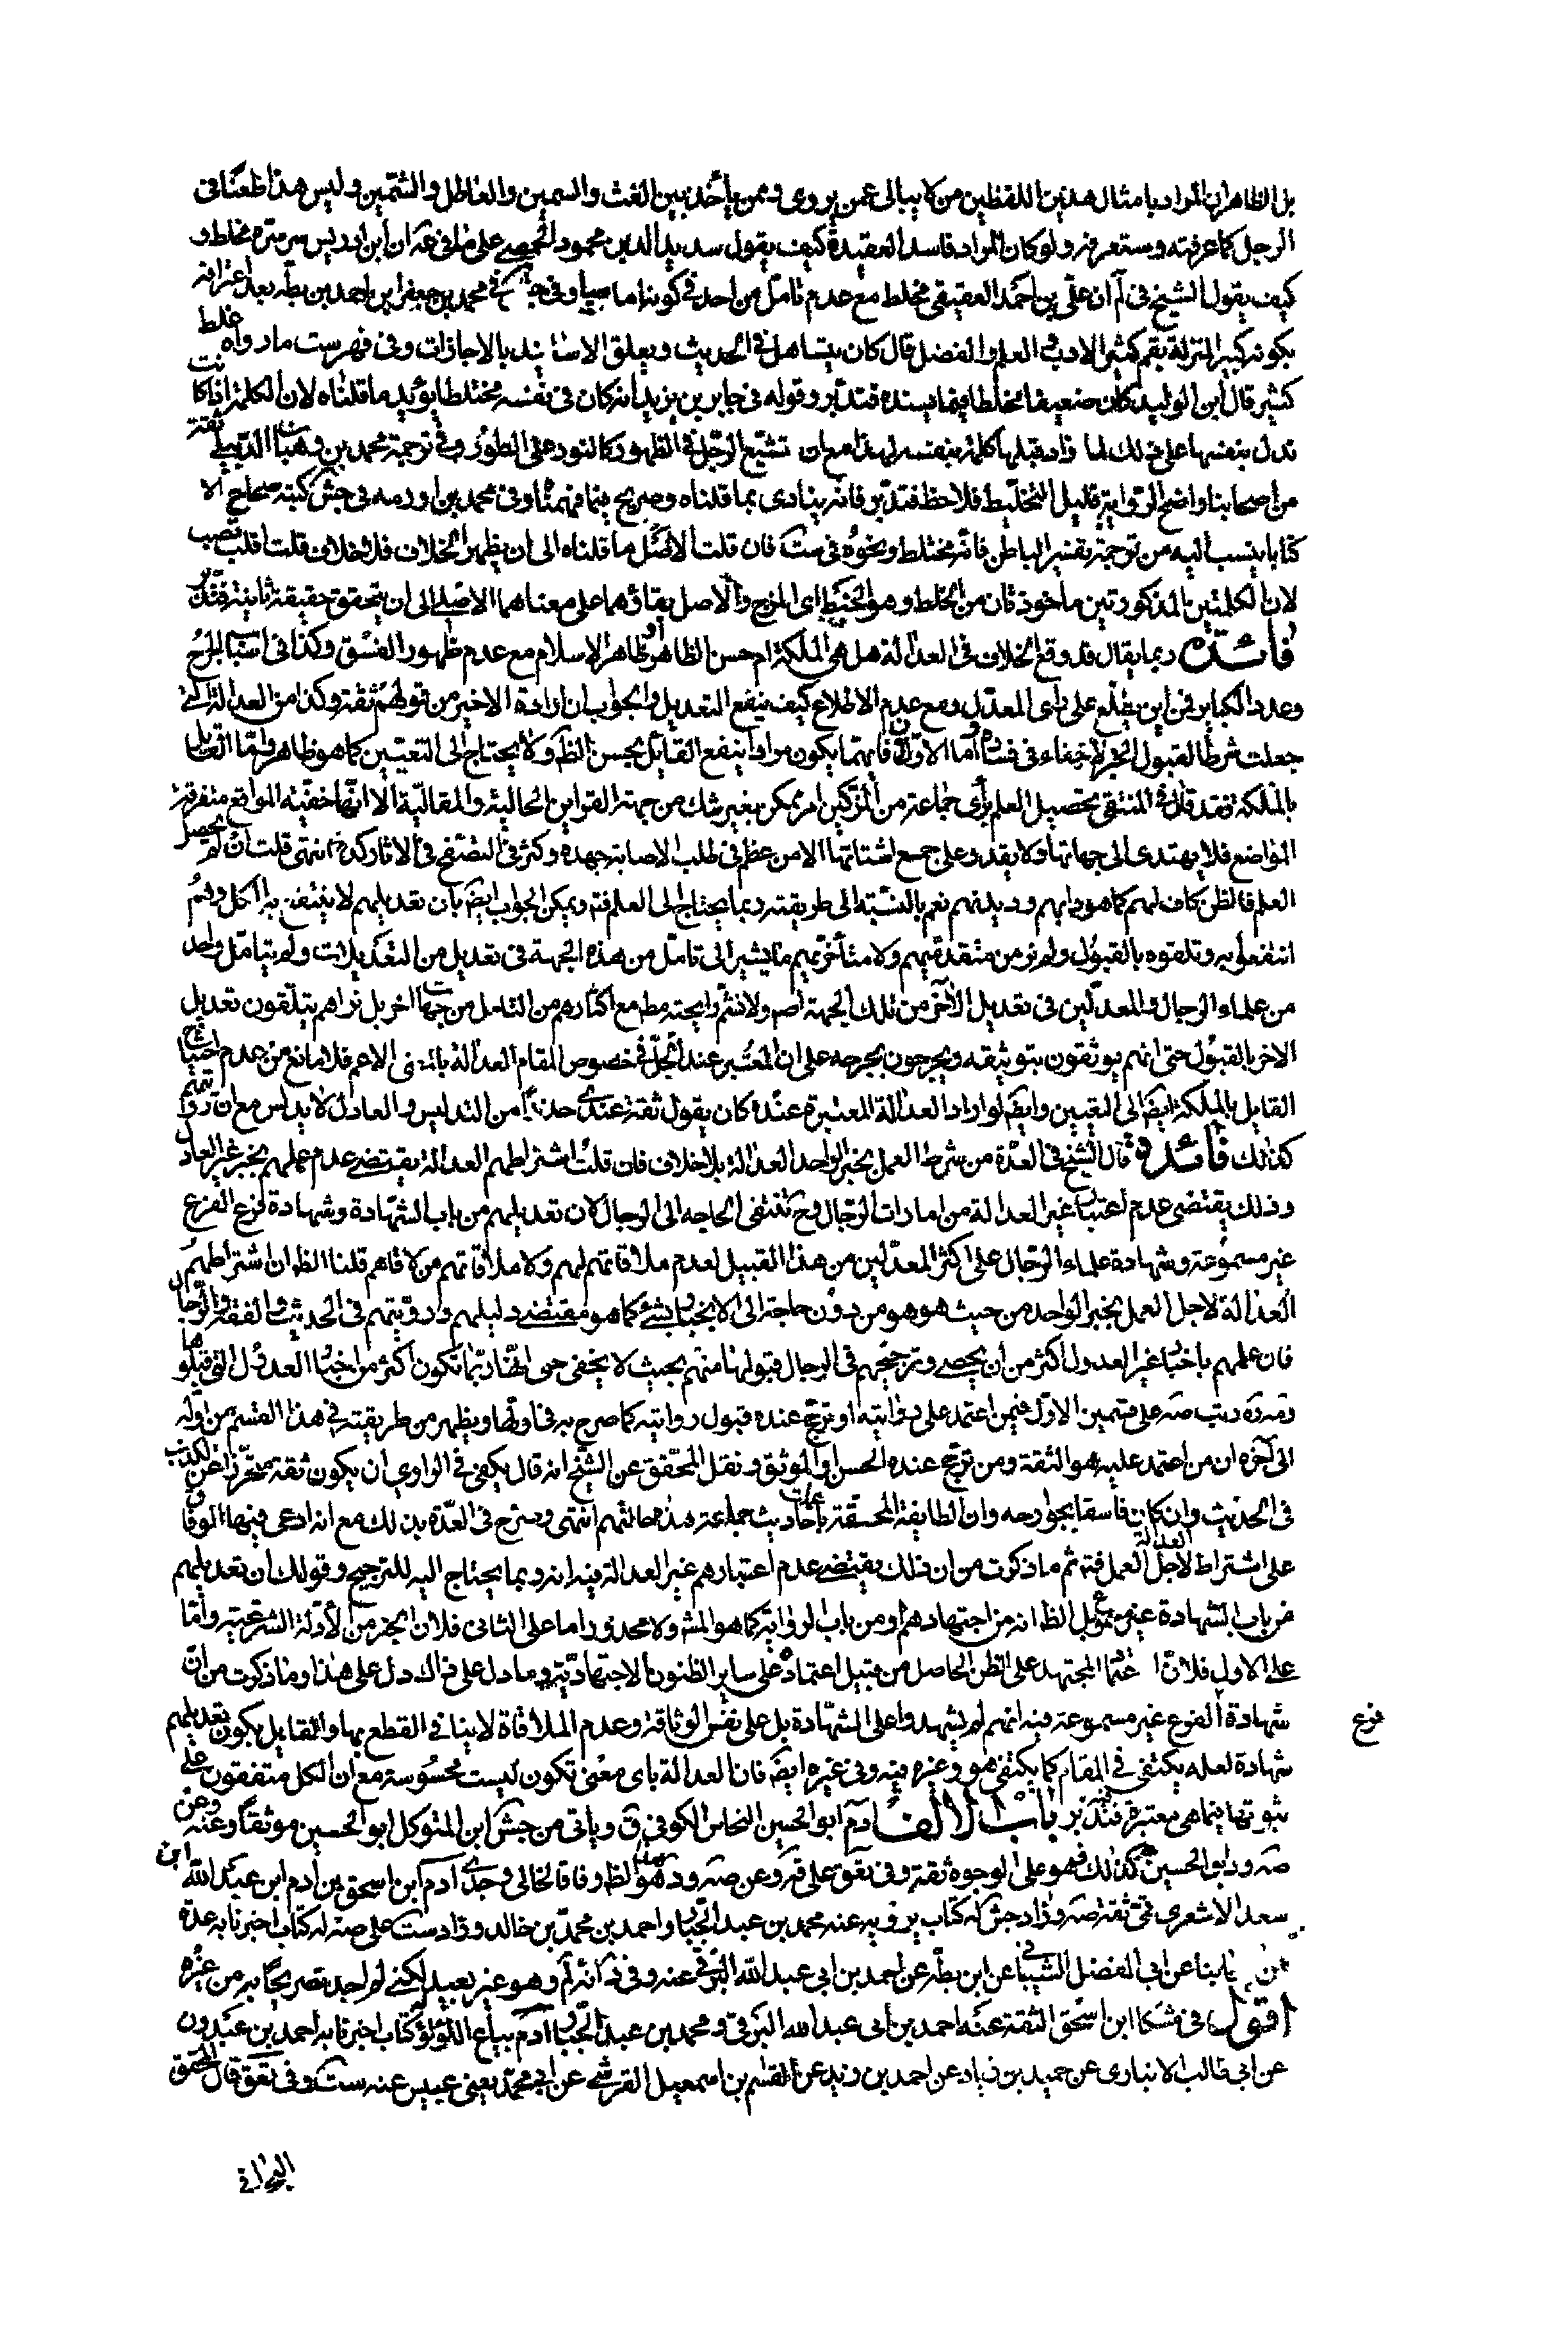 بل الظاهر ان المراد بامثال هذين اللفظين من لا يبالى عمن يروى وممن يأخذ يجمع بين الغث والسمين والعاطل والثمين وليس هذا طعنا فى
الرجل كما عرفته وستعرفه ولو كان المراد فاسد العقيدة كيف يقول سديد الدين محمود الحمصى على ما فى عه ان ابن ادريس سره مخلط و
كيف يقول الشيخ فى لم ان على بن احمد العقيقى مخلط مع عدم تامل من احد فى كونه اماميا وفى جش فى محمد بن جعفر ابن احمد بن بطه بعد اعترافه
بكونه كبير المنزلة بقم كثير الادب والعلم والفضل قال كان يتساهل فى الحديث ويعلق الاسانيد بالاجازات وفى فهرست ما رواه غلط
كثير قال ابن الوليد كان ضعيفا مخلطا فيما يسنده فتدبر وقوله فى جابر بن يزيد انه كان فى نفسه مختلطا يؤيد ما قلناه لان الكلمة اذا كانت
تدل بنفسها على ذلك لما زاد قبلها كلمة بنفسه هذا مع ان تشيع الرجل فى الظهور كالنور على الطور وفى ترجمة محمد بن وهبان الدبيلى ثقة
من اصحابنا واضح الرواية قليل التخليط فلاحظ فتدبر فانه ينادى بما قلناه وصريح فيما فهمناه وفى محمد بن اورمه فى جش كتبه صحاح الا
كتابا ينسب اليه من ترجمة تفسير الباطن فانه مختلط ونحوه فى ست فان قلت الاصل ما قلناه الى ان يظهر الخلاف فلا خلاف قلت قلب نصب
لان الكلمتين المذكورتين ماخوذتان من الخلط وهو الخبط اى المزج والاصل بقاؤهما على معناهما الاصلى الى ان يتحقق حقيقة ثانية فتدبر
فائدة ربما يقال قد وقع الخلاف فى العدالة هل هى الملكة ام حسن الظاهر او ظاهر الاسلام مع عدم ظهور الفسق وكذا فى اسباب الجرح
وعدد الكباير فمن اين يطلع على راى المعدل ومع عدم الاطلاع كيف ينفع التعديل والجواب ان ارادة الاخير من قولهم ثقة وكذا من العدالة التى
جعلت شرطا لقبول الخبر لا خفاء فى فساده واما الاولان فايهما يكون مرادا ينفع القايل بحسن الظه ولا يحتاج الى التعيين كما هو ظاهر واما القايل
بالملكة فقد قال فى المنتقى تحصيل العلم برأى جماعة من المزكين امر ممكن بغير شك من جهة القراين الحالية والمقالية الا انها خفية المواقع متفرقة
المواضع فلا يهتدى الى جهاتها ولا يقدر على جمع اشتاتها الا من عظم فى طلب الاصابة جهده وكثر فى التصفح فى الاثار كده انتهى قلت ان لم يحصل
العلم فالظن كاف لهم كما هو دابهم وديدنهم نعم بالنسبة الى طريقته ربما يحتاج الى العلم فته ويمكن الجواب ايضه بان تعديلهم لان ينتفع به الكل وهم
انتفعوا به وتلقوه بالقبول ولم نر من متقدميهم ولا متأخريهم ما يشير الى تامل من هذه الجهة فى تعديل من التعديلات ولم يتامل واحد
من علماء الرجال والمعدلين فى تعديل الاخر من تلك الجهة اصه ولا نشم رايحته مطه مع اكثارهم من التامل من جهات اخر بل نراهم يتلقون تعديل
الاخر بالقبول حتى انهم يوثقون بتوثيقه ويجرحون بجرحه على ان المعتبر عند الجل فى خصوص المقام العدالة بالمعنى الاعم فلا مانع من عدم احتياج
القايل بالملكة ايضه الى التعيين وايضه لو اراد العدالة المعتبرة عنده كان يقول ثقة عندى حذرا من التدليس والعادل لا يدلس مع ان رواتهم
كذلك فائدة قال الشيخ فى العدة من شرط العمل بخبر الواحد العدالة بلا خلاف فان قلت اشتراطهم العدالة يقتضى عدم عملهم بخبر غير العادل
وذلك يقتضى عدم اعتبار غير العدالة من امارات الرجال وح تنتفى الحاجه الى الرجال لان تعديلهم من باب الشهادة وشهادة فرع الفرع
غير مسموعة وشهادة علماء الرجال على اكثر المعدلين من هذا القبيل لعدم ملاقاتهم لهم ولا ملاقاتهم من لاقاهم قلنا الظه ان اشتراطهم
العدالة لاجل العمل بخبر الواحد من حيث هو هو من دون حاجة الى الانجبار بشئ كما هو مقتضى دليلهم ورويتهم فى الحديث والفقه والرجال
فان عملهم باخبار غير العدول اكثر من ان يحصى وترجيحهم فى الرجال قبولها منهم بحيث لا يخفى حتى انها ربما تكون اكثر من اخبار العدول التى قبلوها
رتب صه على قسمين الاول فيمن اعتمد على روايته او ترجح عنده قبول روايته كما صرح به فى اولها ويظهر من طريقته فى هذا القسم من اوله
الى آخره ان من اعتمد عليه هو الثقة ومن ترجح عنده الحسن او الموثق ونقل المحقق عن الشيخ انه قال يكفى فى الراوى ان يكون ثقة متحرزا عن الكذب
فى الحديث وان كان فاسقا بجوارحه وان الطايفة المحقة عملت باحاديث جماعة هذه حالتهم انتهى وصرح فى العدة بذلك مع انه ادعى فيها الوفاق
على اشتراط العدالة لاجل العمل فته ثم ما ذكرت من ان ذلك يقتضى عدم اعتبارهم غير العدالة فيه انه ربما يحتاج اليه للترجيح وقولك ان تعديلهم
من باب الشهادة غير مسموع بل الظه انه من اجتهادهم او من باب الرواية كما هو المشه ولا محذور اما على الثانى فلان الخبر من الأدلة الشرعية واما
على الاول فلان اعتماد المجتهد على الظن الحاصل من قبيل اعتماده على ساير الظنون الاجتهادية وما دل على ذاك دل على هذا وما ذكرت من ان
شهادة الفرع غير مسموعة فيه انهم لم يشهدوا على الشهادة بل على نفس الوثاقة وعدم الملاقاة لا ينافى القطع بها والقايل بكون تعديلهم
فرع
شهادة لعله يكتفى فى المقام كما يكتفى هو وغيره فيه وفى غيره ايضه فان العدالة باى معنى تكون ليست محسوسة مع ان الكل متفقون على
ثبوتها فيما هى معتبرة فيه فتدبر باب الالف آدم ابو الحسين النحاس الكوفى ق وياتى من جش ابن المتوكل ابو الحسين موثقا وعنه وعن
صه ود ابو الحسين كذلك فهو على الوجوه ثقة وفى تعق على قوله وعن صه ود هو الظه وفاقا لخالى وجدى آدم ابن اسحق بن آدم ابن عبد الله ابن
سعد الاشعرى قمى ثقة صه وزاد جش له كتاب يرويه عنه محمد بن عبد الجبار واحمد بن محمد بن خالد وزاد ست على صه له كتاب اخبرنا به عدة
من اصحابنا عن ابى الفضل الشيبانى عن ابن بطه عن احمد بن ابى عبد الله البرقى عنه وفى د انه لم وهو غير بعيد لكنى لم اجد تصريحا به من غيره
اقول فى مشكا ابن اسحق الثقة عنه احمد بن ابى عبد الله البرقى ومحمد بن عبد الجبار آدم بياع اللؤلؤ له كتاب اخبرنا به احمد بن عبدون
عن ابى طالب الانبارى عن حميد بن زياد عن احمد بن زيد عن القسم بن اسمعيل القرشى عن ابى محمد يعنى عبيس عنه ست وفى تعق قال المحقق
البحرانى